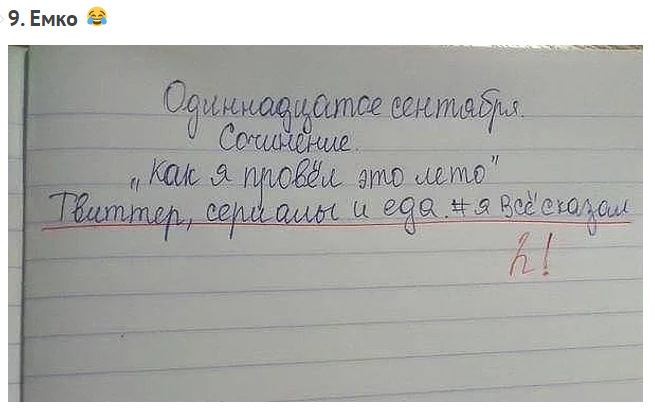 9. Емко 😂
Одиннадцатое сентября.
Сочинение.
„Как я провёл это лето"
Твиттер, сериалы и еда. #я всё сказал
2!